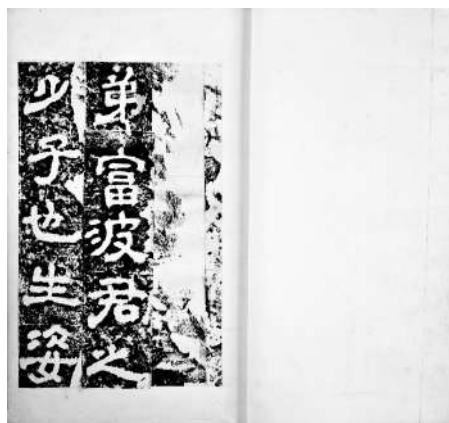 弟富波君之
少子也生姿